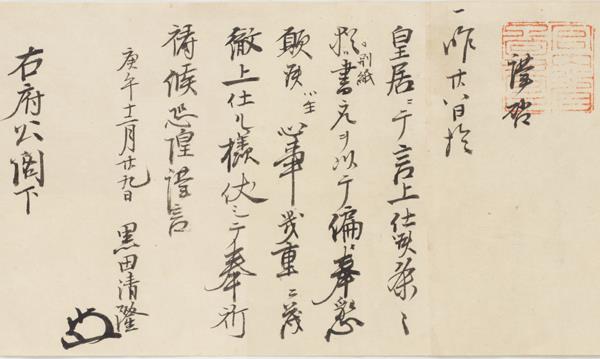 謹啓
一昨廿八日於
皇居ニテ言上仕候条々
別紙書ヲ以テ偏ニ奉懇
願候小生心事幾重ニ茂
徹上仕ル様伏シテ奉祈
祷候恐惶謹言
庚午十二月廿九日 黒田清隆
右府公閣下